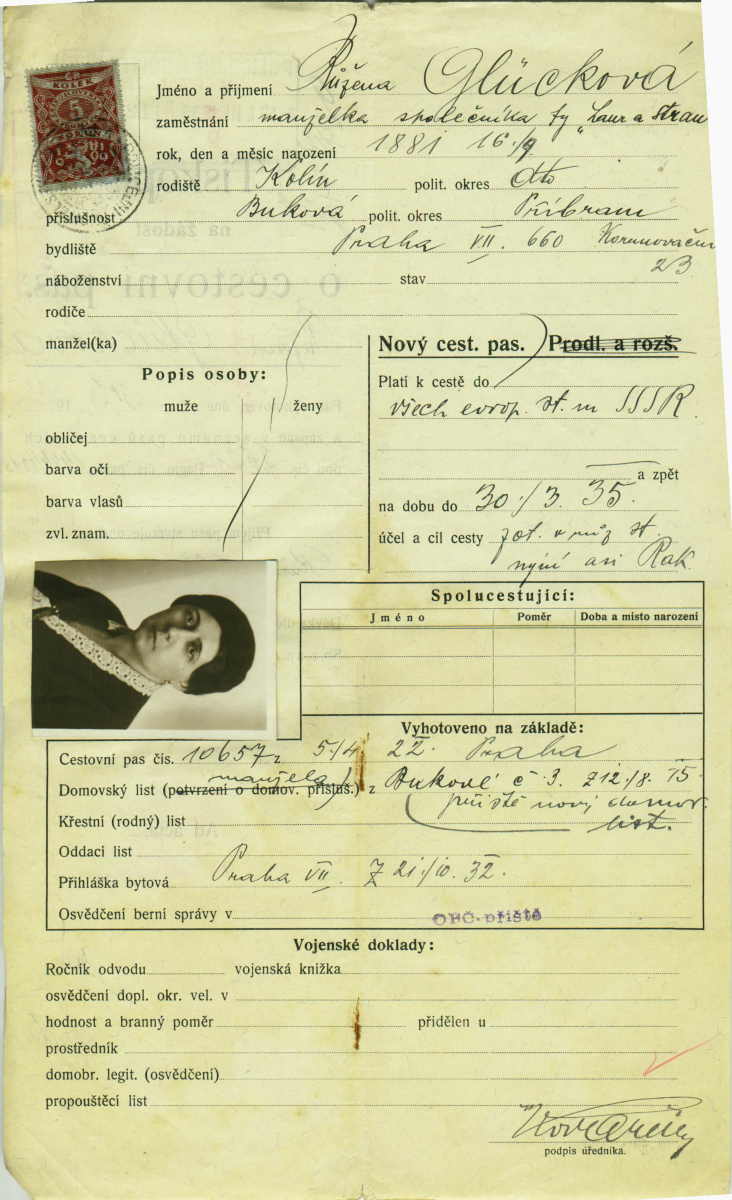 KOLEK
5
Jméno a příjmení Růžena Glücková
zaměstnání manželka společníka fy „Laur a Stran
rok, den a měsíc narození 1881 16./9
rodiště Kolín polit. okres dto
příslušnost Buková polit. okres Příbram
bydliště Praha VII. 660 Korunovační
23
náboženství stav
rodiče
manžel(ka)
Nový cest. pas. Prodl. a rozš.
Popis osoby:
muže ženy
obličej
barva očí
barva vlasů
zvl. znam.
Platí k cestě do
všech evrop. st. m SSSR
a zpět
na dobu do 30./3. 35.
účel a cil cesty zot. v růz st.
nyní asi Rak.
Spolucestující:
Jméno Poměr Doba a místo narození
Vyhotoveno na základě:
Cestovní pas čís. 10657 z 5./4 22. Praha
manžela
Domovský list (potvrzení o domov. přísluš.) z Bukové č 3. z 12./8. 15.
příště nový domov.
list.
Křestní (rodný) list
Oddaci list
Přihláška bytová Praha VII. Z 21./10. 32.
Osvědčení berní správy v OBČ. příště
Vojenské doklady:
Ročník odvodu vojenská knížka
osvědčení dopl. okr. vel. v
hodnost a branný poměr přidělen u
prostředník
domobr. legit. (osvědčení)
propouštěcí list
podpis úředníka.